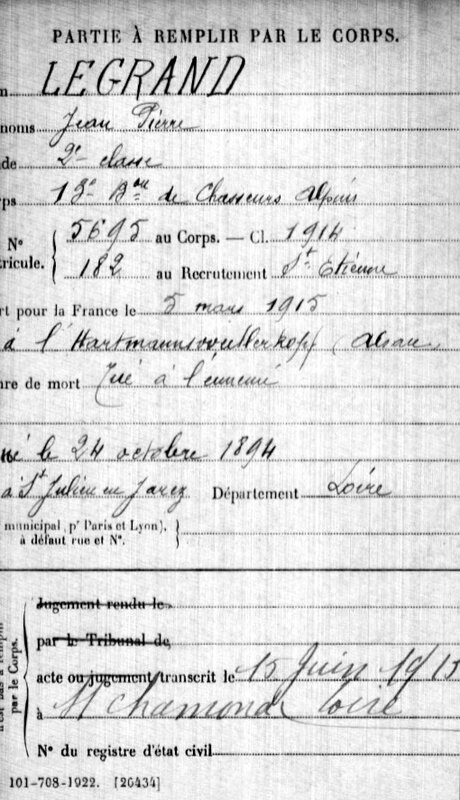 PARTIE À REMPLIR PAR LE CORPS.
m LEGRAND
noms Jean Pierre
de 2e classe
ps 13e Bon de Chasseurs Alpins
N° tricule. { 5695 au Corps. — Cl. 1914
182 au Recrutement St Etienne
rt pour la France le 5 mars 1915
à l'Hartmannswillerkopf (Alsace
nre de mort Tué à l'ennemi
né le 24 octobre 1894
à St Julien en Jarez Département Loire
municipal (pr Paris et Lyon), }
à défaut rue et N°.
Jugement rendu le
par le Tribunal de
acte ou jugement transcrit le 15 Juin 1915
à St Chamond Loire
N° du registre d'état civil
par le Corps.
101-708-1922. [26434]